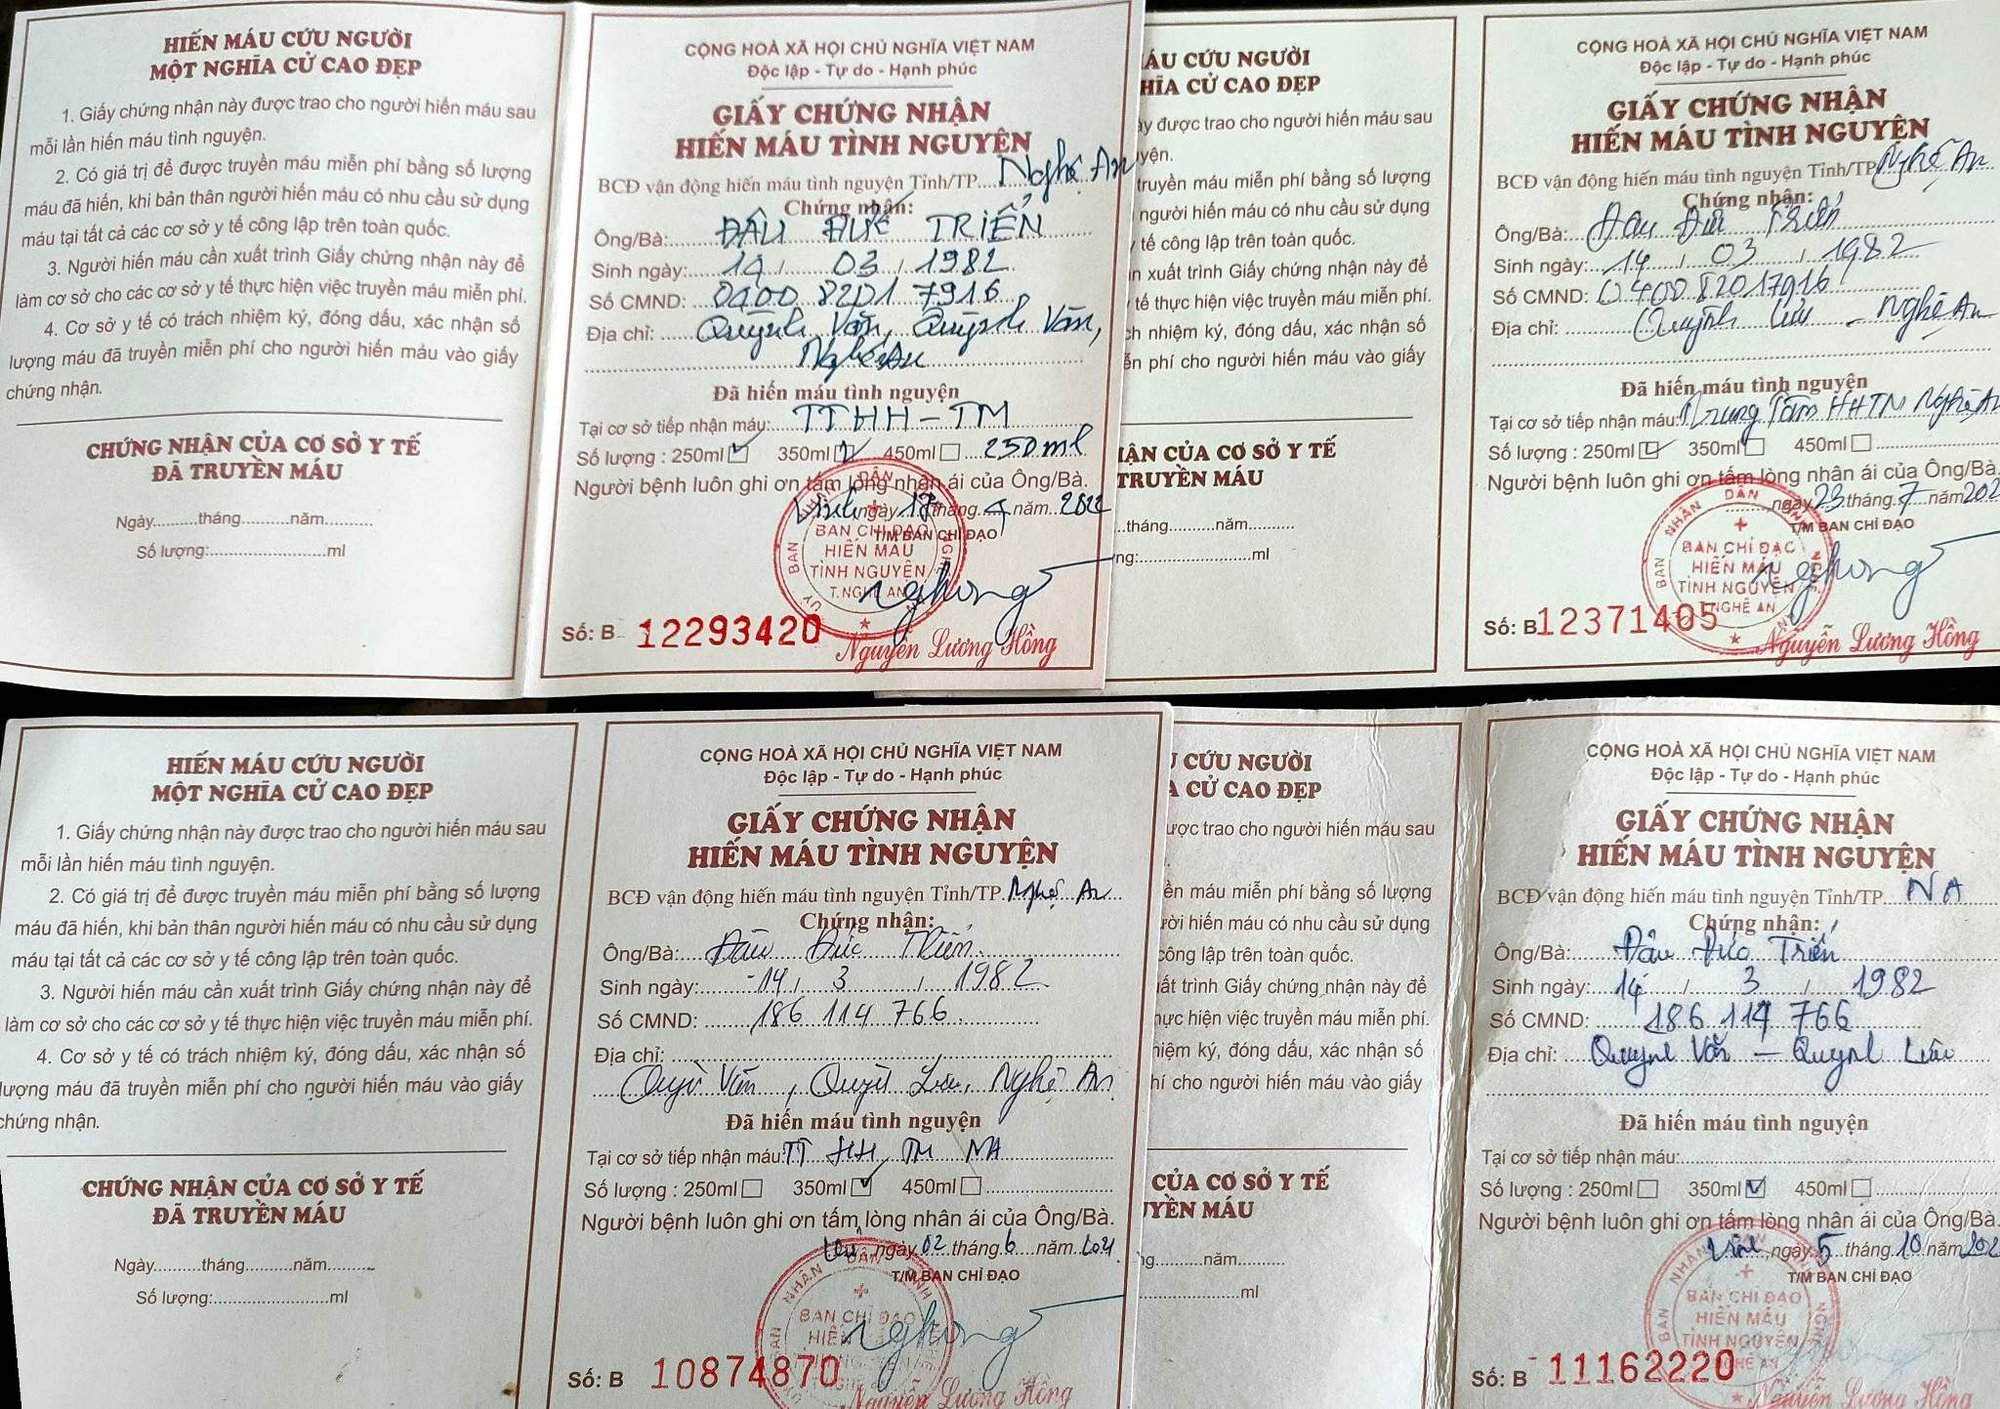 HIẾN MÁU CỨU NGƯỜI
MỘT NGHĨA CỬ CAO ĐẸP
1. Giấy chứng nhận này được trao cho người hiến máu sau
mỗi lần hiến máu tình nguyện.
2. Có giá trị để được truyền máu miễn phí bằng số lượng
máu đã hiến, khi bản thân người hiến máu có nhu cầu sử dụng
máu tại tất cả các cơ sở y tế công lập trên toàn quốc.
3. Người hiến máu cần xuất trình Giấy chứng nhận này để
làm cơ sở cho các cơ sở y tế thực hiện việc truyền máu miễn phí.
4. Cơ sở y tế có trách nhiệm ký, đóng dấu, xác nhận số
lượng máu đã truyền miễn phí cho người hiến máu vào giấy
chứng nhận.
CHỨNG NHẬN CỦA CƠ SỞ Y TẾ
ĐÃ TRUYỀN MÁU
Ngày..........tháng..........năm............
Số lượng:........................ml
CỘNG HOÀ XÃ HỘI CHỦ NGHĨA VIỆT NAM
Độc lập - Tự do - Hạnh phúc
GIẤY CHỨNG NHẬN
HIẾN MÁU TÌNH NGUYỆN
BCĐ vận động hiến máu tình nguyện Tỉnh/TP Nghệ An
Chứng nhận:
Ông/Bà: ĐẬU ĐỨC TRIỂN
Sinh ngày: 14 / 03 / 1982
Số CMND: 0400 8201 7916
Địa chỉ: Quỳnh Văn, Quỳnh Văn,
Nghệ An
Đã hiến máu tình nguyện
Tại cơ sở tiếp nhận máu: TTHH-TM
Số lượng : 250ml 350ml 450ml 250ml
Người bệnh luôn ghi ơn tấm lòng nhân ái của Ông/Bà.
Vinh ngày 17 tháng 4 năm 2022
T/M BAN CHỈ ĐẠO
ỦY BAN NHÂN DÂN TỈNH NGHỆ AN
BAN CHỈ ĐẠO
HIẾN MÁU
TÌNH NGUYỆN
T. NGHỆ AN
Số: B 12293420
Nguyễn Lương Hồng
ÁU CỨU NGƯỜI
HĨA CỬ CAO ĐẸP
ày được trao cho người hiến máu sau
yện.
truyền máu miễn phí bằng số lượng
người hiến máu có nhu cầu sử dụng
tế công lập trên toàn quốc.
n xuất trình Giấy chứng nhận này để
tế thực hiện việc truyền máu miễn phí.
ch nhiệm ký, đóng dấu, xác nhận số
ễn phí cho người hiến máu vào giấy
HẬN CỦA CƠ SỞ Y TẾ
TRUYỀN MÁU
tháng..........năm.........
ng:........................ml
CỘNG HOÀ XÃ HỘI CHỦ NGHĨA VIỆT NAM
Độc lập - Tự do - Hạnh phúc
GIẤY CHỨNG NHẬN
HIẾN MÁU TÌNH NGUYỆN
BCĐ vận động hiến máu tình nguyện Tỉnh/TP Nghệ An
Chứng nhận:
Ông/Bà: Đậu Đức Triển
Sinh ngày: 14 / 03 / 1982
Số CMND: 040082017916
Địa chỉ: Quỳnh Lưu - Nghệ An
Đã hiến máu tình nguyện
Tại cơ sở tiếp nhận máu: Trung Tâm HHTM Nghệ An
Số lượng : 250ml 350ml 450ml
Người bệnh luôn ghi ơn tấm lòng nhân ái của Ông/Bà
ngày 23 tháng 7 năm 202
T/M BAN CHỈ ĐẠO
BAN CHỈ ĐẠO
HIẾN MÁU
TÌNH NGUYỆN
NGHỆ AN
Số: B 12371405
Nguyễn Lương Hồng
HIẾN MÁU CỨU NGƯỜI
MỘT NGHĨA CỬ CAO ĐẸP
1. Giấy chứng nhận này được trao cho người hiến máu sau
mỗi lần hiến máu tình nguyện.
2. Có giá trị để được truyền máu miễn phí bằng số lượng
máu đã hiến, khi bản thân người hiến máu có nhu cầu sử dụng
máu tại tất cả các cơ sở y tế công lập trên toàn quốc.
3. Người hiến máu cần xuất trình Giấy chứng nhận này để
làm cơ sở cho các cơ sở y tế thực hiện việc truyền máu miễn phí.
4. Cơ sở y tế có trách nhiệm ký, đóng dấu, xác nhận số
lượng máu đã truyền miễn phí cho người hiến máu vào giấy
chứng nhận.
CHỨNG NHẬN CỦA CƠ SỞ Y TẾ
ĐÃ TRUYỀN MÁU
Ngày..........tháng..........năm............
Số lượng:........................ml
CỘNG HOÀ XÃ HỘI CHỦ NGHĨA VIỆT NAM
Độc lập - Tự do - Hạnh phúc
GIẤY CHỨNG NHẬN
HIẾN MÁU TÌNH NGUYỆN
BCĐ vận động hiến máu tình nguyện Tỉnh/TP Nghệ An
Chứng nhận:
Ông/Bà: Đậu Đức Triển
Sinh ngày: 14 / 3 / 1982
Số CMND: 186 114 766
Địa chỉ:
Quỳ Văn, Quỳ Lưu, Nghệ An
Đã hiến máu tình nguyện
Tại cơ sở tiếp nhận máu: TT HH TM NA
Số lượng : 250ml 350ml 450ml
Người bệnh luôn ghi ơn tấm lòng nhân ái của Ông/Bà.
ngày 02 tháng 6 năm 2021
T/M BAN CHỈ ĐẠO
BAN CHỈ ĐẠO
HIẾN
Số: B 10874870
Nguyễn Lương Hồng
CỨU NGƯỜI
CỬ CAO ĐẸP
ược trao cho người hiến máu sau
ền máu miễn phí bằng số lượng
ười hiến máu có nhu cầu sử dụng
công lập trên toàn quốc.
ất trình Giấy chứng nhận này để
hực hiện việc truyền máu miễn phí.
hiệm ký, đóng dấu, xác nhận số
hí cho người hiến máu vào giấy
CỦA CƠ SỞ Y TẾ
YỀN MÁU
ng..........năm.........
ml
CỘNG HOÀ XÃ HỘI CHỦ NGHĨA VIỆT NAM
Độc lập - Tự do - Hạnh phúc
GIẤY CHỨNG NHẬN
HIẾN MÁU TÌNH NGUYỆN
BCĐ vận động hiến máu tình nguyện Tỉnh/TP NA
Chứng nhận:
Ông/Bà: Đậu Đức Triển
Sinh ngày: 14 / 3 / 1982
Số CMND: 186 114 766
Địa chỉ: Quỳnh Văn - Quỳnh Lưu
Đã hiến máu tình nguyện
Tại cơ sở tiếp nhận máu:
Số lượng : 250ml 350ml 450ml
Người bệnh luôn ghi ơn tấm lòng nhân ái của Ông/Bà
Vinh, ngày 5 tháng 10 năm 202
T/M BAN CHỈ ĐẠO
BAN CHỈ ĐẠO
HIẾN MÁU
TÌNH NGUYỆN
NGHỆ AN
Số: B 11162220
Nguyễn Lương Hồng